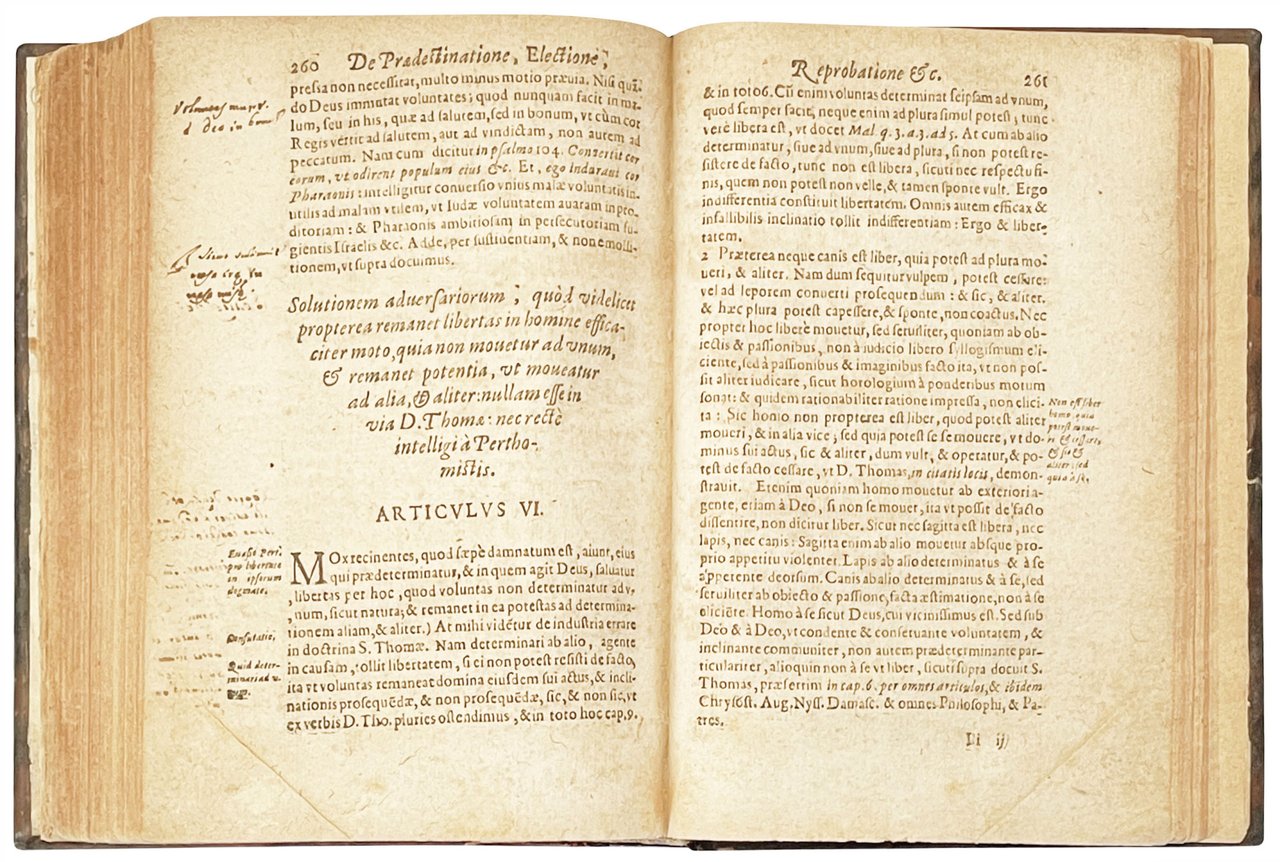 260 De Prædestinatione, Electione,
presia non necessitat, multo minus motio prævia. Nisi quã-
do Deus immutat voluntates; quod nunquam facit in ma-
lum, seu in his, quæ ad salutem, sed in bonum, vt cùm cor
Regis vertit ad salutem, aut ad vindictam, non autem ad
peccatum. Nam cum dicitur in psalmo 104. Conuertit cor
eorum, vt odirent populum eius &c. Et, ego indurabi cor
Pharaonis: intelligitur conuersio vnius malæ voluntatis in-
utilis ad malam vtilem, vt Iudæ voluntatem auaram in pro-
ditoriam: & Pharaonis ambitiosam in persecutoriam fu-
gientis Israelis &c. Adde, per sustinentiam, & non emolli-
tionem, vt supra docuimus.
Solutionem aduersariorum; quòd videlicet
propterea remanet libertas in homine effica-
citer moto, quia non mouetur ad vnum,
& remanet potentia, vt moueatur
ad alia, & aliter: nullam esse in
via D. Thomæ: nec rectè
intelligi à Pertho-
mistis.
ARTICVLVS VI.
MOx recinentes, quod sæpè damnatum est, aiunt, eius
qui prædeterminatur, & in quem agit Deus, saluatur
libertas per hoc, quod voluntas non determinatur ad v-
num, sicut natura; & remanet in ea potestas ad determina-
tionem aliam, & aliter.) At mihi vidẽtur de industria errare
in doctrina S. Thomæ. Nam determinari ab alio, agente
in causam, tollit libertatem, si ei non potest resisti de facto,
ita vt voluntas remaneat domina eiusdem sui actus, & incli-
nationis prosequẽdæ, & non prosequẽdæ, sic, & non sic, vt
ex verbis D. Tho. pluries ostendimus, & in toto hoc cap. 9.
Euasio Pert.
pro libertate
in ipsorum
dogmate.
Confutatio.
Quid deter-
minari ad v-
Reprobatione &c. 261
& in toto 6. Cũ enim voluntas determinat seipsam ad vnum,
quod semper facit, neque enim ad plura simul potest; tunc
verè libera est, vt docet Mal q. 3. a. 3. ad 5. At cum ab alio
determinatur, siue ad vnum, siue ad plura, si non potest re-
sistere de facto, tunc non est libera, sicuti nec respectu fi-
nis, quem non potest non velle, & tamen sponte vult. Ergo
indifferentia constituit libertatem. Omnis autem efficax &
infallibilis inclinatio tollit indifferentiam: Ergo & liber-
tatem.
2 Præterea neque canis est liber, quia potest ad plura mo-
ueri, & aliter. Nam dum sequitur vulpem, potest cessare:
vel ad leporem conuerti prosequendum: & sic, & aliter.
& hæc plura potest capessere, & sponte, non coactus. Nec
propter hoc liberè mouetur, sed seruiliter, quoniam ab ob-
iectis & passionibus, non à iudicio libero syllogismum eli-
ciente, sed à passionibus & imaginibus facto ita, vt non pos-
sit aliter iudicare, sicut horologium à ponderibus motum
sonat: & quidem rationabiliter ratione impressa, non elici-
ta: Sic homo non propterea est liber, quod potest aliter
moueri, & in alia vice; sed quia potest se se mouere, vt do-
minus sui actus, sic & aliter, dum vult, & operatur, & po-
test de facto cessare, vt D. Thomas, in citatis locis, demon-
strauit. Etenim quoniam homo mouetur ab exteriori a-
gente, etiam à Deo, si non se mouet, ita vt possit de facto
dissentire, non dicitur liber. Sicut nec sagitta est libera, nec
lapis, nec canis: Sagitta enim ab alio mouetur absque pro-
prio appetitu violenter. Lapis ab alio determinatus & à se
appetente deorsum. Canis ab alio determinatus & à se, sed
seruiliter ab obiecto & passione, facta æstimatione, non à se
elicičte. Homo à se sicut Deus, cui vicinissimus est. Sed sub
Deo & à Deo, vt condente & conseruante voluntatem, &
inclinante communiter, non autem prædeterminante par-
ticulariter, alioquin non à se vt liber, sicuti supra docuit S.
Thomas, præsertim in cap. 6. per omnes articulos, & ibidem
Chrysost. Aug. Nyss. Damasc. & omnes Philosophi, & Pa-
tres.
Non est liber
homo quia
potest moue-
ri & cessare,
& sic &
aliter: sed
quia à se.
Ii ij